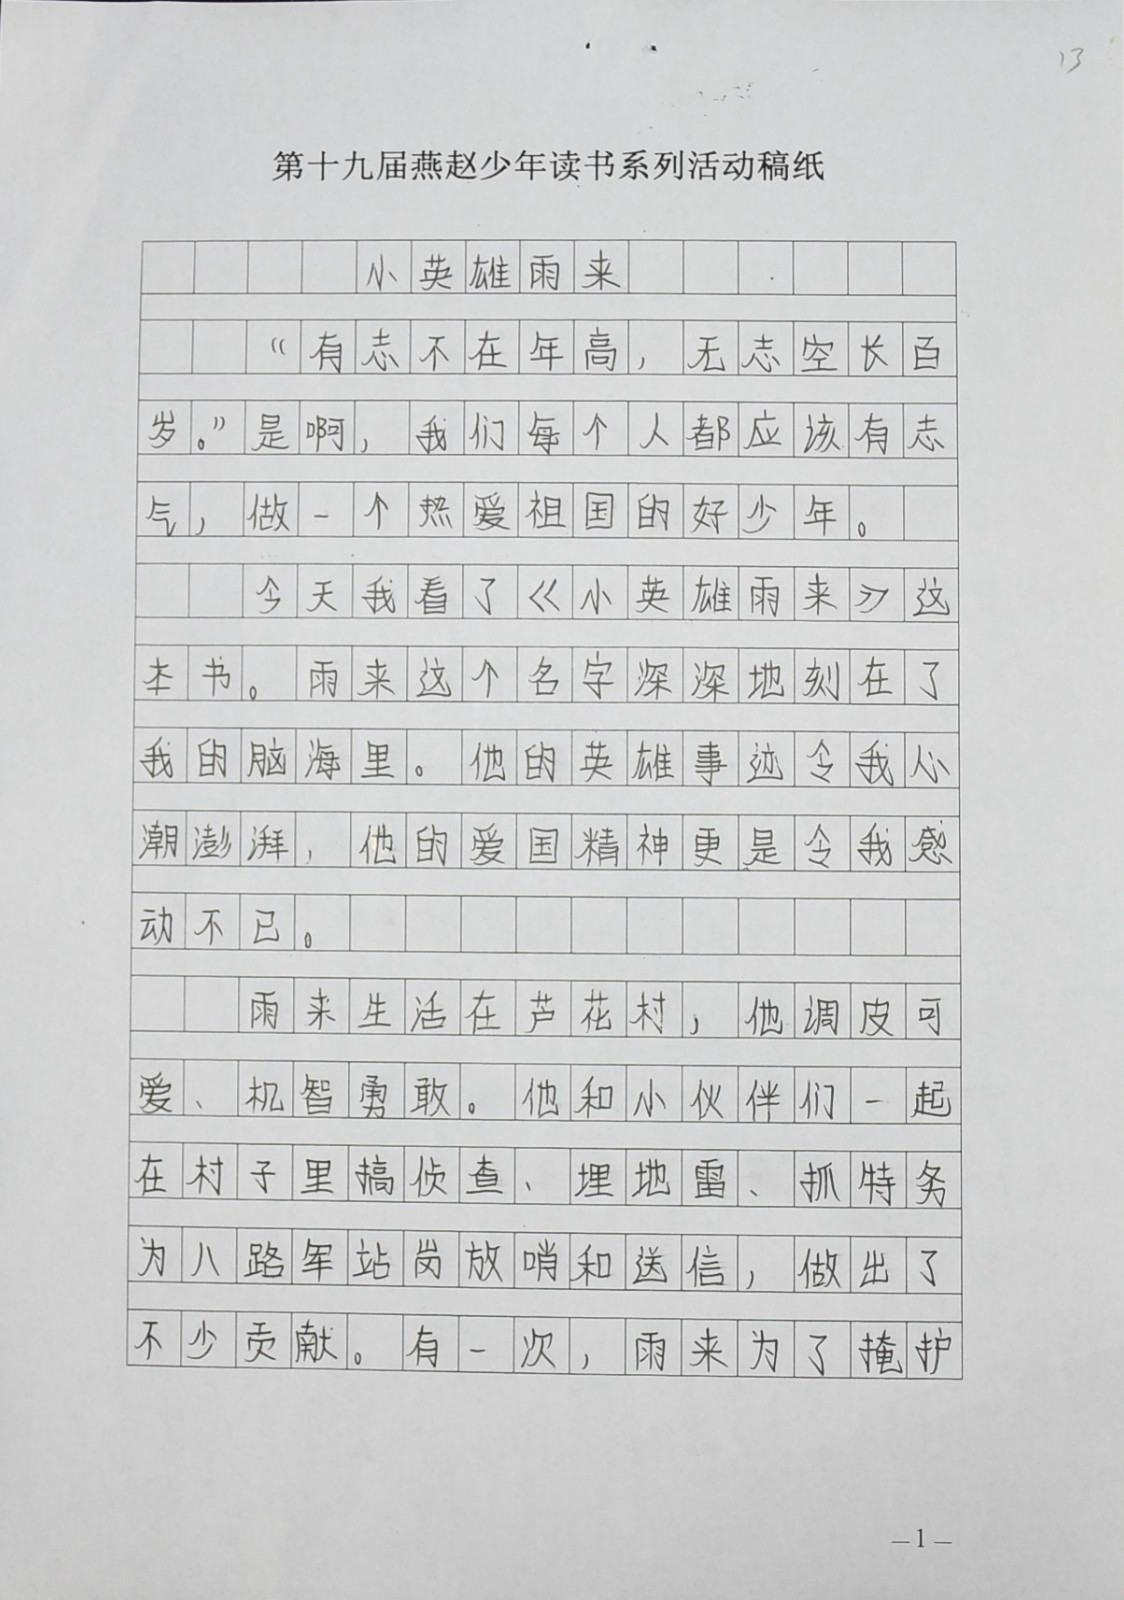 13
第十九届燕赵少年读书系列活动稿纸
小英雄雨来
“有志不在年高，无志空长百
岁。”是啊，我们每个人都应该有志
气，做一个热爱祖国的好少年。
今天我看了《小英雄雨来》这
本书。雨来这个名字深深地刻在了
我的脑海里。他的英雄事迹令我心
潮澎湃，他的爱国精神更是令我感
动不已。
雨来生活在芦花村，他调皮可
爱、机智勇敢。他和小伙伴们一起
在村子里搞侦查、埋地雷、抓特务
为八路军站岗放哨和送信，做出了
不少贡献。有一次，雨来为了掩护
—1—